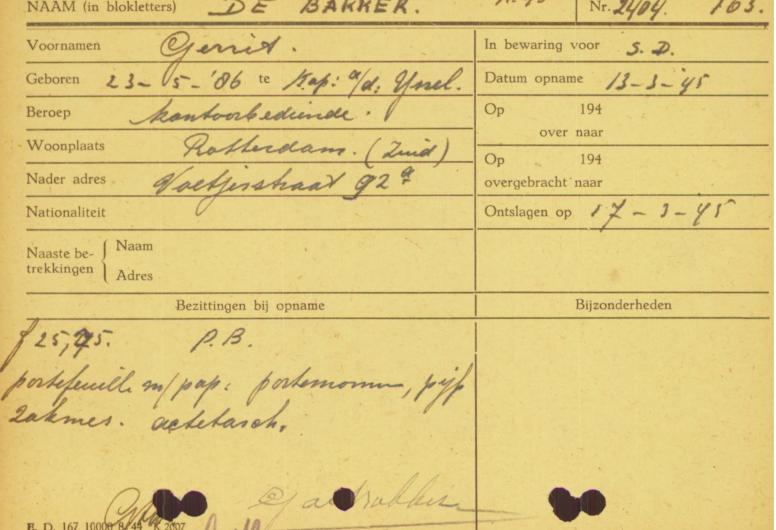 NAAM (in blokletters) DE BAKKER. Nr. 2404. 703.
Voornamen Gerrit. In bewaring voor S.D.
Geboren 23-5-'86 te Kap: a/d. IJssel. Datum opname 13-3-45
Beroep kantoorbediende. Op 194
over naar
Woonplaats Rotterdam. (Zuid) Op 194
Nader adres Voetjesstraat 92a overgebracht naar
Nationaliteit Ontslagen op 17-3-45
Naaste be-trekkingen Naam
Adres
Bezittingen bij opname Bijzonderheden
f 25,75. P.B.
portefeuille m/pap: portemonn, pijp
zakmes. actetasch.
E. D. 167 10000 8/44 K 2007